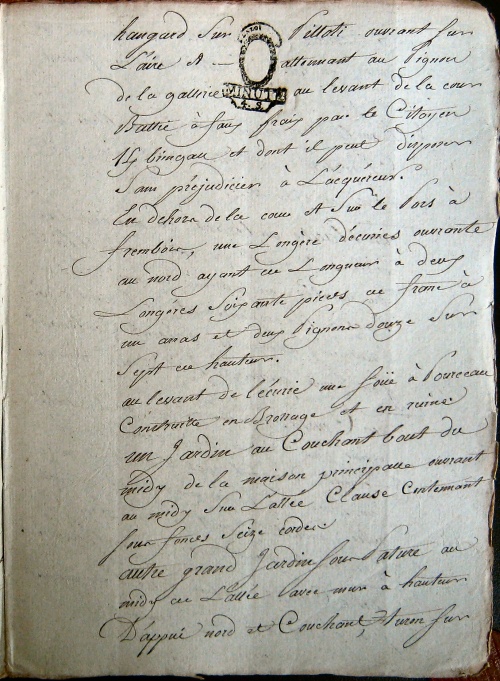 hangard sur Pilloti ouvrant sur
L'aire et attennant au Pignon
de la gallerie au levant de la cour
MINUTE
Battie à faux frais par le Citoyen
et dont il peut disposer
Sans préjudicier à L'acquéreur.
En dehors de la cour et sur le Pors à
frembois, une Longère d'écuries ouvrante
au nord ayant en Longueur à deux
Longères soixante pieds en franc à
un amas et deux Pignons douze sur
Sept en hauteur.
au levant de l'écurie une soüe à Pourceau
Construitte en Brossage et en ruine
un Jardin au Couchant bout du
midy de la maison principalle ouvrant
au midy sur L'allée Clause Contenant
sous fonces seize cordes
autre grand Jardin sous Pature au
midy de L'allée avec mur à hauteur
D'appui nord et Couchant, Turon sur